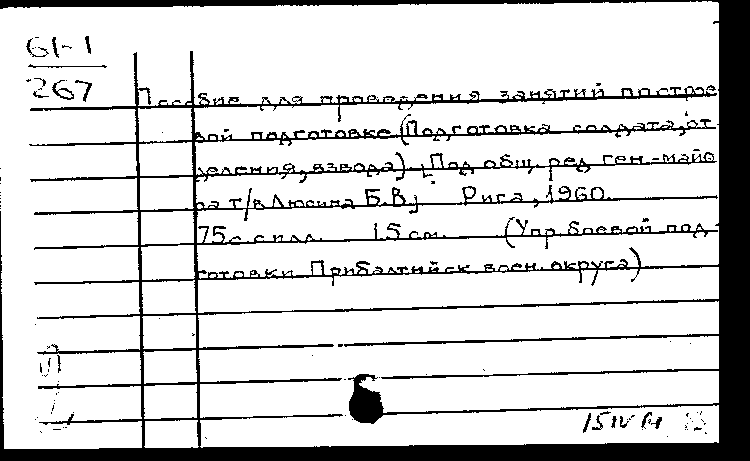 61-1
267
Пособие для проведения занятий по строе
вой подготовке (Подготовка солдата, от
деления, взвода). [Под общ. ред. ген.-майо
ра т/в Люсина Б.В.] Рига, 1960.
75 с. с илл. 15 см. (Упр. боевой под-
готовки Прибалтийск. воен. округа)
15 IV 61